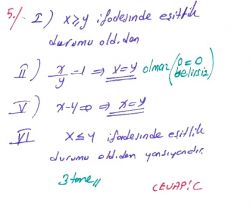 5./- I) x≥y ifadesinde eşitlik
durumu oldidan
II) x/y = 1 ⇒ x=y olmaz (0/0 = belirsiz)
V) x-y=0 ⇒ x=y
VI x≤y ifadesinde eşitlik
durumu oldidan yansıyandır.
3 tane //
CEVAP: C